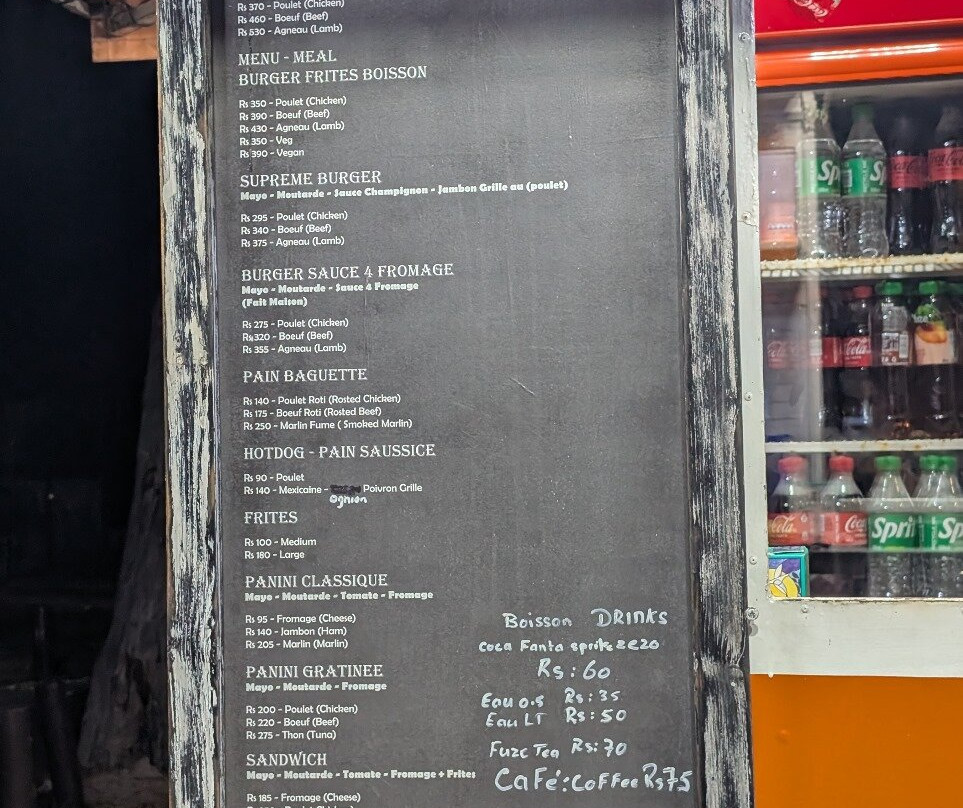 Rs 370 - Poulet (Chicken)
Rs 460 - Boeuf (Beef)
Rs 530 - Agneau (Lamb)
MENU - MEAL
BURGER FRITES BOISSON
Rs 350 - Poulet (Chicken)
Rs 390 - Boeuf (Beef)
Rs 430 - Agneau (Lamb)
Rs 350 - Veg
Rs 390 - Vegan
SUPREME BURGER
Mayo - Moutarde - Sauce Champignon - Jambon Grille au (poulet)
Rs 295 - Poulet (Chicken)
Rs 340 - Boeuf (Beef)
Rs 375 - Agneau (Lamb)
BURGER SAUCE 4 FROMAGE
Mayo - Moutarde - Sauce 4 Fromage
(Fait Maison)
Rs 275 - Poulet (Chicken)
Rs 320 - Boeuf (Beef)
Rs 355 - Agneau (Lamb)
PAIN BAGUETTE
Rs 140 - Poulet Roti (Rosted Chicken)
Rs 175 - Boeuf Roti (Rosted Beef)
Rs 250 - Marlin Fume ( Smoked Marlin)
HOTDOG - PAIN SAUSSICE
Rs 90 - Poulet
Rs 140 - Mexicaine - Poivron Grille
Ognion
FRITES
Rs 100 - Medium
Rs 180 - Large
PANINI CLASSIQUE
Mayo - Moutarde - Tomate - Fromage
Rs 95 - Fromage (Cheese)
Rs 140 - Jambon (Ham)
Rs 205 - Marlin (Marlin)
PANINI GRATINEE
Mayo - Moutarde - Fromage
Rs 200 - Poulet (Chicken)
Rs 220 - Boeuf (Beef)
Rs 275 - Thon (Tuna)
SANDWICH
Mayo - Moutarde - Tomate - Fromage + Frites
Rs 185 - Fromage (Cheese)
Boisson DRINKS
Coca Fanta sprite
Rs: 60
Eau 0.5 Rs: 35
Eau LT Rs: 50
Fuze Tea Rs: 70
Café: Coffee Rs 75
Sp
Sp
Coca-Cola
Sprit
Sp